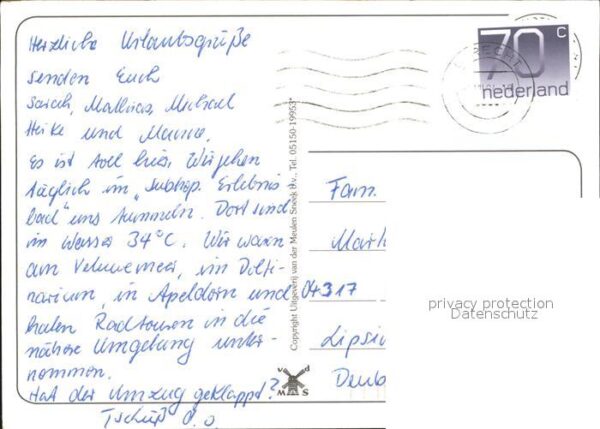 Herzliche Urlaubsgrüße
senden Euch
Sarah, Mathias, Michael
Heike und
Es ist toll hier. Wir gehen
täglich im „Subtrop. Erlebnis
bad" uns tummeln. Dort sind
im Wasser 34°C. Wir waren
am Veluwemeer, im Dolfi-
narium, in Apeldorn und
haben Radtouren in die
nähere Umgebung unter-
nommen.
Hat der Umzug geklappt?
Tschüß
70 c
nederland
Copyright Uitgeverij van der Meulen Sneek B.V., Tel. 05150-19953*
v d
M S
Fam.
04317
Deub
privacy protection
Datenschutz